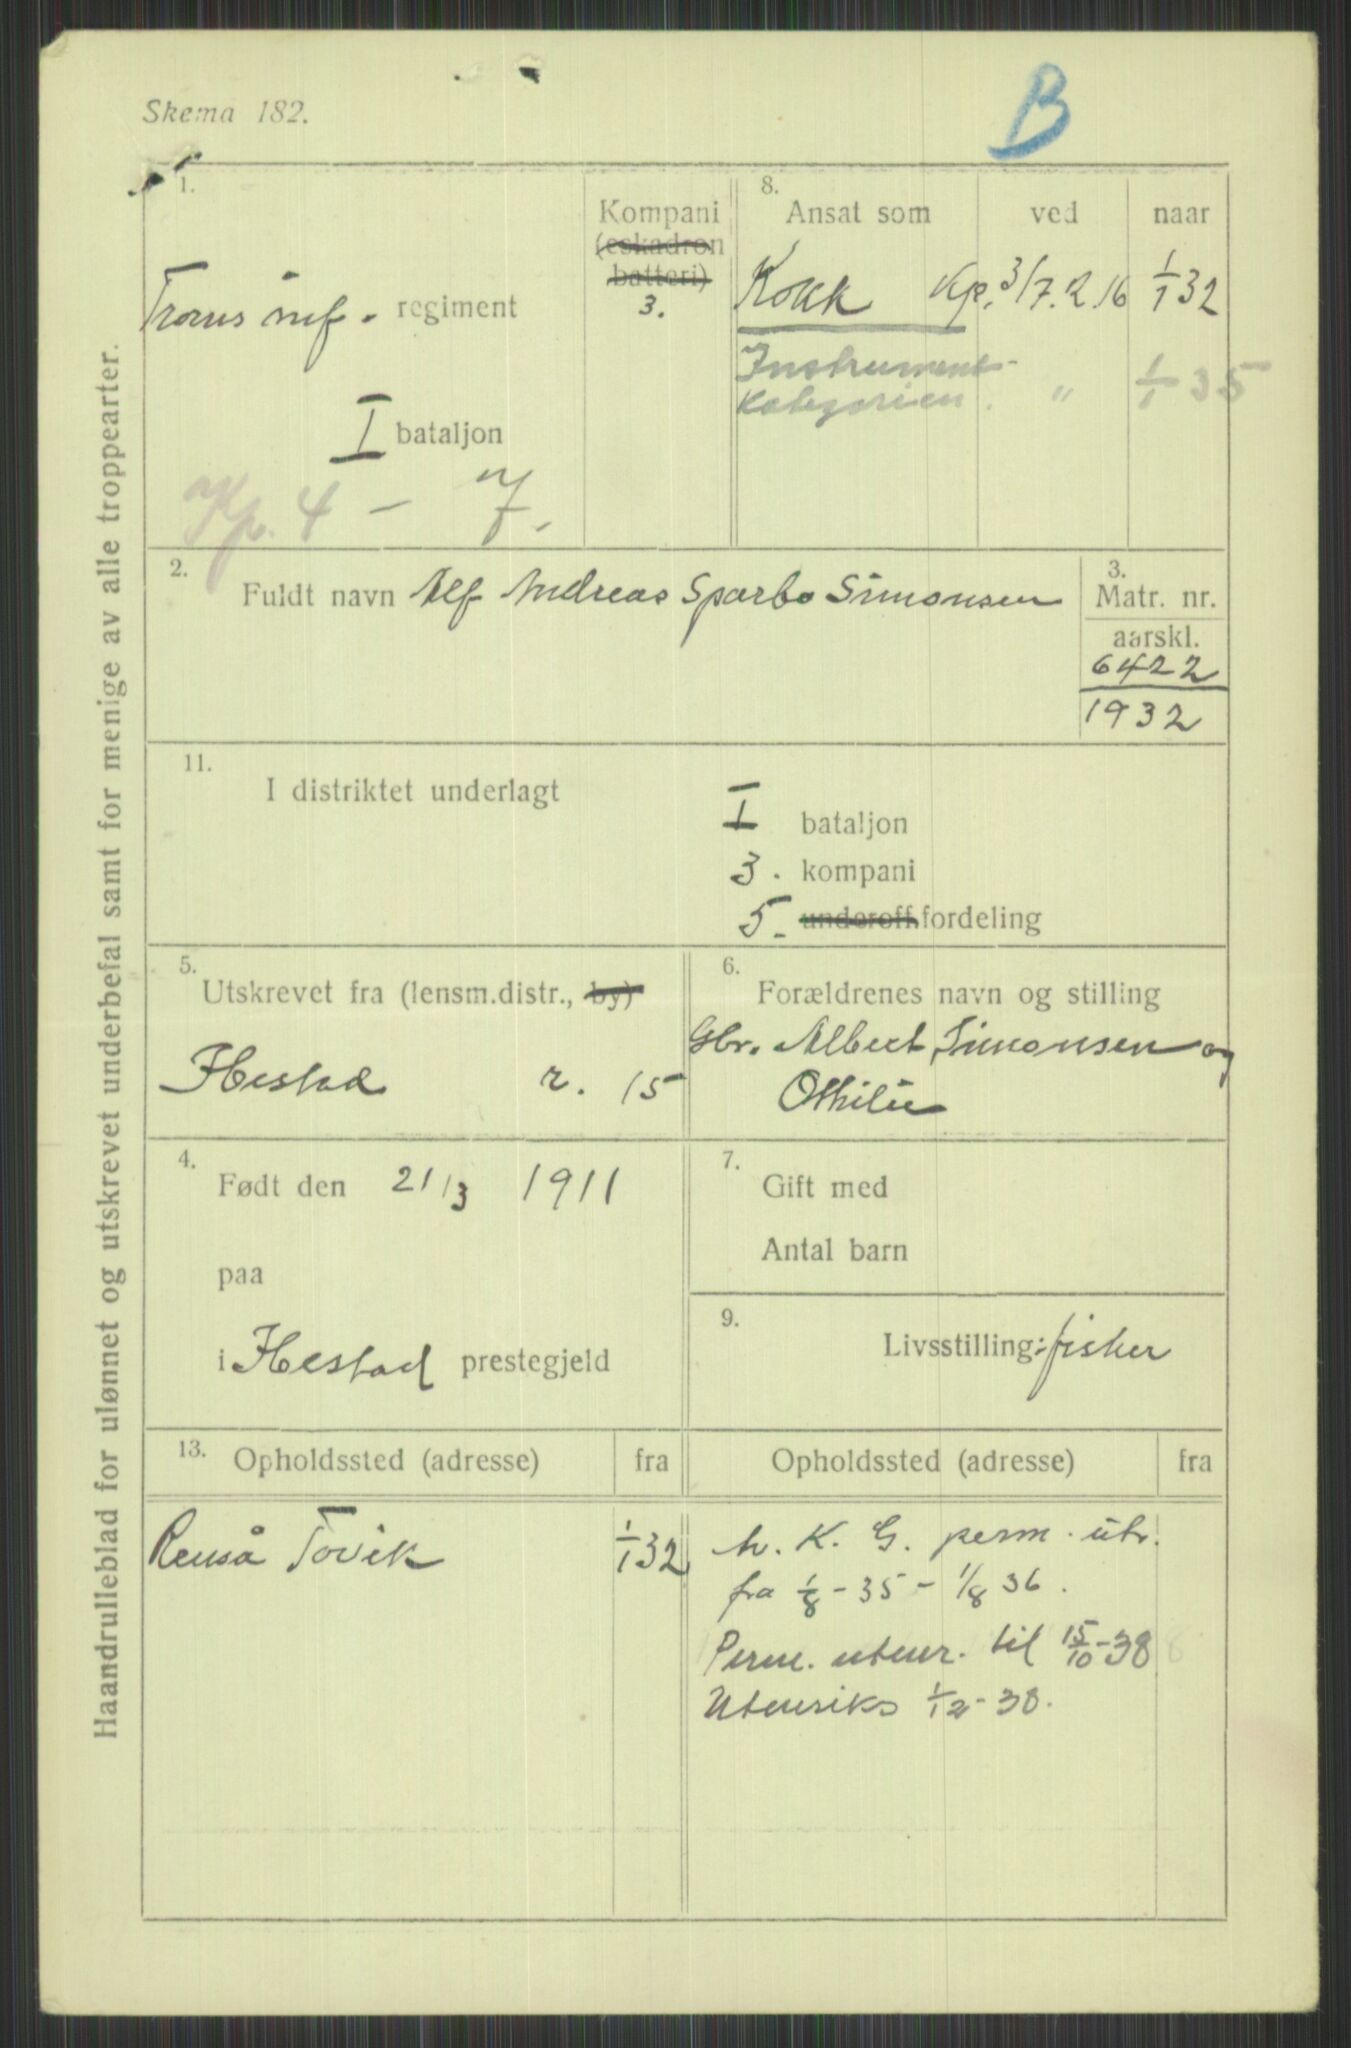 B
Skema 182.
Haandrulleblad for ulønnet og utskrevet underbefal samt for menige av alle troppearter.
1.
Troms inf. regiment
I bataljon
Kp. 4 - 7.
Kompani
(eskadron
batteri)
3.
8.
Ansat som ved naar
Kokk Kp. 3/7. R. 16 1/1 32
Instrument-
kategorien. " 1/1 35
2.
Fuldt navn Alf Andreas Sparbo Simonsen
3.
Matr. nr.
aarskl.
6422
1932
11.
I distriktet underlagt
I bataljon
3. kompani
5. underoff.fordeling
5.
Utskrevet fra (lensm.distr., by)
Ibestad r. 15
6.
Forældrenes navn og stilling
Gbr. Albert Simonsen og
Othilie
4.
Født den 21/3 1911
paa
i Ibestad prestegjeld
7.
Gift med
Antal barn
9.
Livsstilling: fisker
13. Opholdssted (adresse) fra
Renså Tovik 1/1 32
Opholdssted (adresse) fra
h. K. G. perm. utr.
fra 1/8 - 35 - 1/8 36.
Perm. utenr. til 15/10-38
Utenriks 1/12-38.